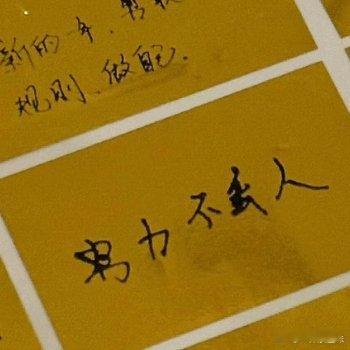 新的一年,
规则、做自己.
努力不丢人